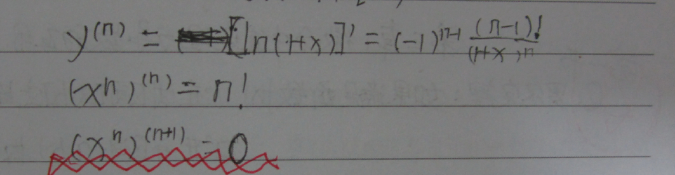 y^(n) = [ln(1+x)]' = (-1)^n-1 (n-1)!/(1+x)^n
(x^n)^(n) = n!
(x^n)^(n+1) = 0